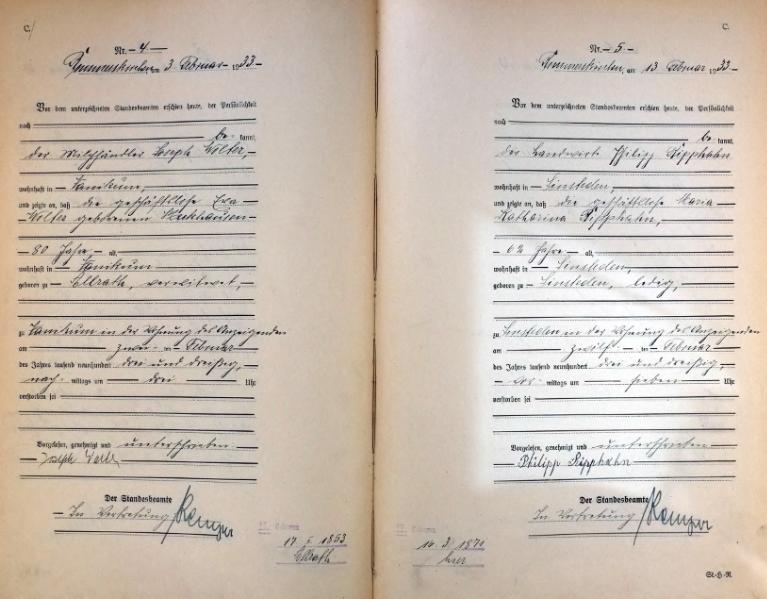 C.
Nr. 4
Rommerskirchen, 3 Februar 1933
Vor dem unterzeichneten Standesbeamten erschien heute, der Persönlichkeit
nach
be kannt,
der Milchhändler Joseph Wolter,
wohnhaft in Ramrath,
und zeigte an, daß die geschäftslose Eva
Wolter geborenen
80 Jahre alt,
wohnhaft in
geboren zu Ellrath, verwitwet,
zu in der Wohnung des Anzeigenden
am zwei ten Februar
des Jahres tausend neunhundert drei und dreißig,
nach mittags um drei Uhr
verstorben sei
Vorgelesen, genehmigt und unterschrieben
Joseph Wolter
Der Standesbeamte
In Vertretung
17. 1853
Ellrath
C.
Nr. 5
Rommerskirchen, am 13 Februar 1933
Vor dem unterzeichneten Standesbeamten erschien heute, der Persönlichkeit
nach
be kannt,
der Landwirt Philipp Sipphahn
wohnhaft in Sinsteden,
und zeigte an, daß die geschäftslose Maria
Katharina Sipphahn,
62 Jahre alt,
wohnhaft in Sinsteden,
geboren zu Sinsteden, ledig,
zu Sinsteden in der Wohnung des Anzeigenden
am zwölf ten Februar
des Jahres tausend neunhundert drei und dreißig,
vor mittags um sieben Uhr
verstorben sei
Vorgelesen, genehmigt und unterschrieben
Philipp Sipphahn
Der Standesbeamte
In Vertretung
St-H-R.